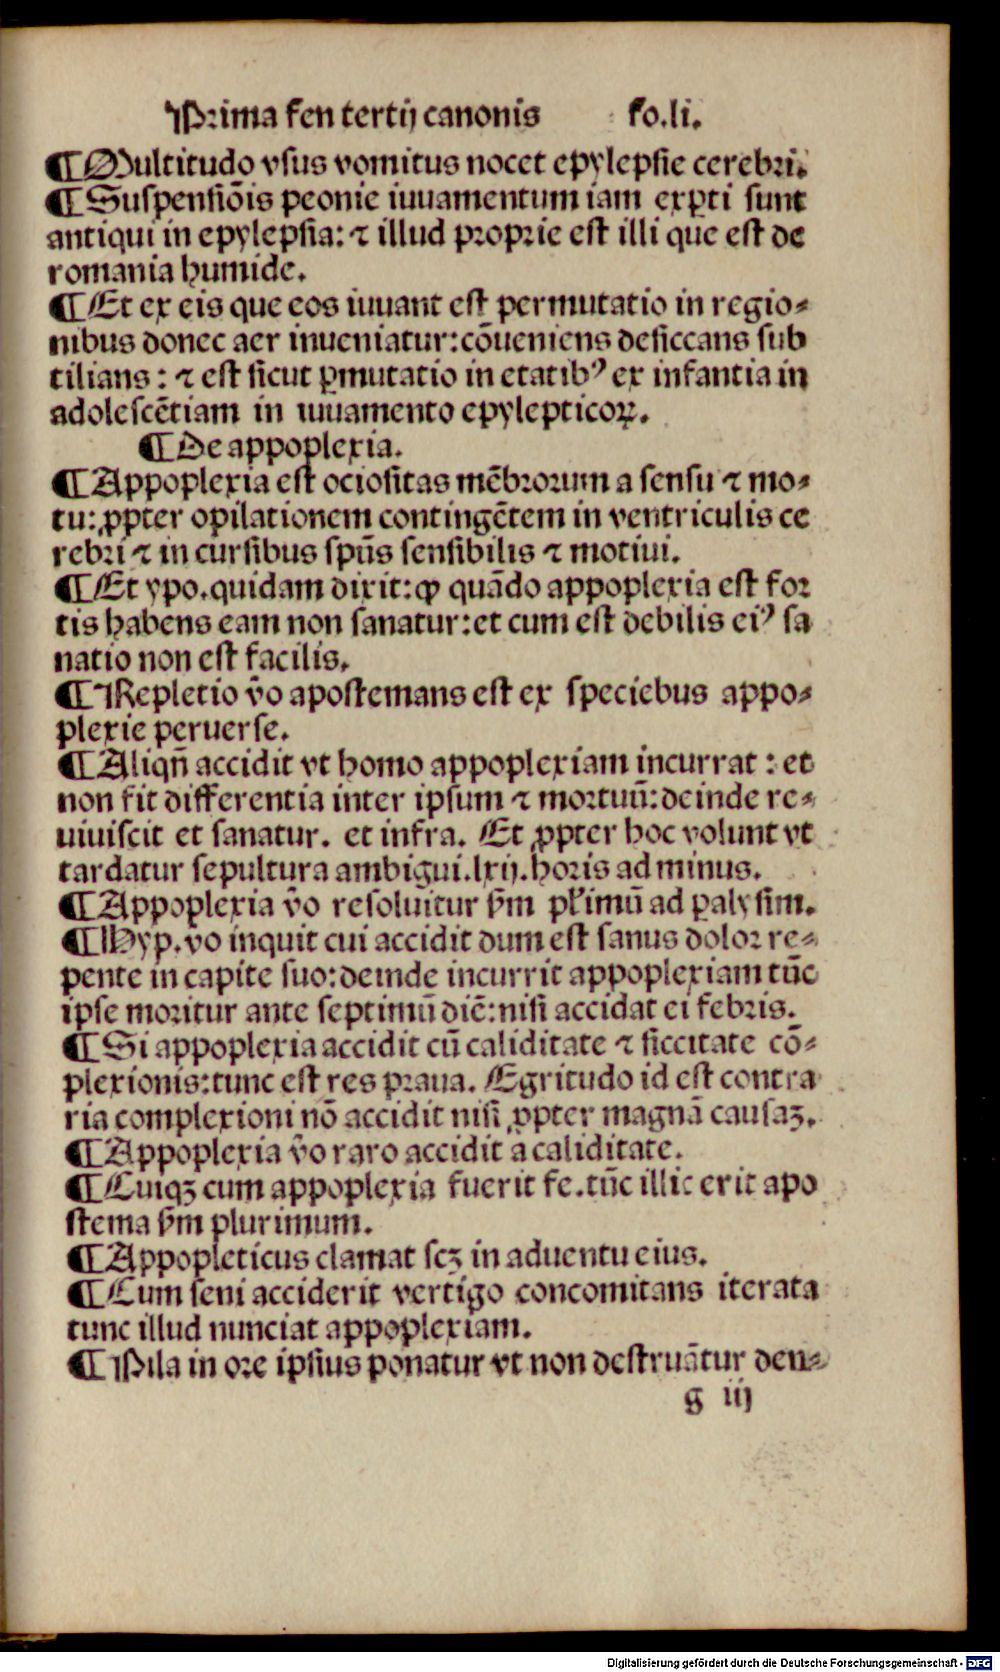 Prima fen tertij canonis fo.li.
¶ Multitudo vsus vomitus nocet epylepsie cerebri.
¶ Suspensiõis peonie iuuamentum iam exꝑti sunt
antiqui in epylepsia: ⁊ illud proprie est illi que est de
romania humide.
¶ Et ex eis que eos iuuant est permutatio in regio-
nibus donec aer inueniatur: cõueniens desiccans sub
tilians: ⁊ est sicut ꝑmutatio in etatibꝰ ex infantia in
adolescẽtiam in iuuamento epylepticoꝝ.
¶ De appoplexia.
¶ Appoplexia est ociositas mẽbrorum a sensu ⁊ mo-
tu: ꝓpter opilationem contingẽtem in ventriculis ce
rebri ⁊ in cursibus spũs sensibilis ⁊ motiui.
¶ Et ypo. quidam dixit: ꝙ quãdo appoplexia est for
tis habens eam non sanatur: et cum est debilis eiꝰ sa
natio non est facilis.
¶ Repletio ṽo apostemans est ex speciebus appo-
plexie peruerse.
¶ Aliqñ accidit vt homo appoplexiam incurrat: et
non fit differentia inter ipsum ⁊ mortuũ: deinde re-
uiuiscit et sanatur. et infra. Et ꝓpter hoc volunt vt
tardatur sepultura ambigui. lxij. horis ad minus.
¶ Appoplexia ṽo resoluitur ẜm pl'imũ ad ꝑalysim.
¶ Hyp. vo inquit cui accidit dum est sanus dolor re-
pente in capite suo: deinde incurrit appoplexiam tũc
ipse moritur ante septimũ diẽ: nisi accidat ei febris.
¶ Si appoplexia accidit cũ caliditate ⁊ siccitate cõ-
plexionis: tunc est res praua. Egritudo id est contra
ria complexioni nõ accidit nisi ꝓpter magnã causaꝫ.
¶ Appoplexia ṽo raro accidit a caliditate.
¶ Cuiqꝫ cum appoplexia fuerit fe. tũc illic erit apo
stema ẜm plurimum.
¶ Appopleticus clamat scꝫ in aduentu eius.
¶ Cum seni acciderit vertigo concomitans iterata
tunc illud nunciat appoplexiam.
¶ Pila in ore ipsius ponatur vt non destruãtur den-
g iij
Digitalisierung gefördert durch die Deutsche Forschungsgemeinschaft - DFG